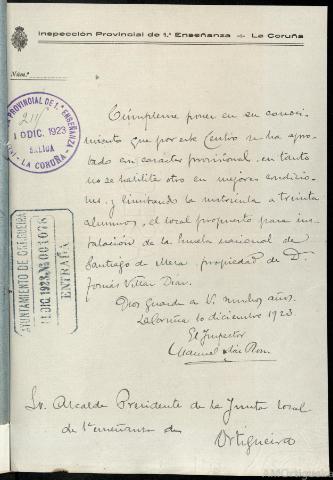 Inspección Provincial de 1.ª Enseñanza - La Coruña
Núm.º
PROVINCIAL DE 1.ª ENSEÑANZA
211
1 DIC. 1923
SALIDA
LA CORUÑA
Cúmpleme poner en su conoci-
miento que por este Centro se ha apro-
bado con carácter provisional, en tanto
no se habilite otro en mejores condicio-
nes y limitando la matrícula a treinta
alumnos, el local propuesto para ins-
talación de la Escuela nacional de
Santiago de Mera, propiedad de D.
Tomás Villar Díaz.
Dios guarde a V. muchos años.
La Coruña 10 diciembre 1923
El Inspector
Manuel Díaz
AYUNTAMIENTO DE ORTIGUEIRA
11 DIC. 1923 Nº 001078
ENTRADA
Sr. Alcalde Presidente de la Junta local
de 1ª enseñanza de
Ortigueira